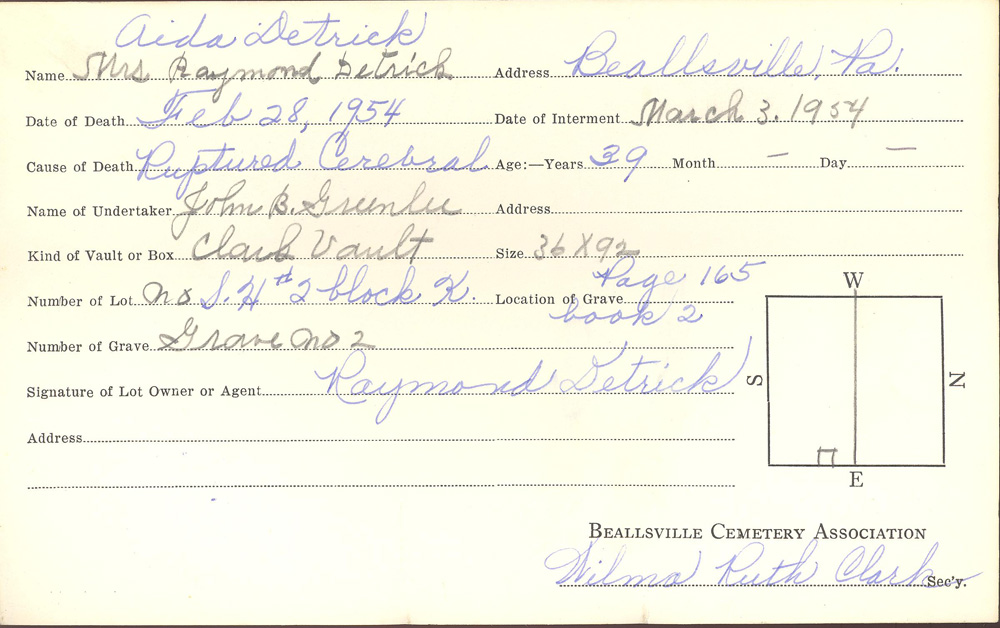 Aida Detrick
Name Mrs Raymond Detrick Address Beallsville, Pa.
Date of Death Feb 28, 1954 Date of Interment March 3. 1954
Cause of Death Ruptured Cerebral Age:—Years 39 Month – Day –
Name of Undertaker John B. Greenlee Address
Kind of Vault or Box Clark Vault Size 36 X 92
Number of Lot no S. H #2 block K. Location of Grave Page 165
book 2
Number of Grave Grave no 2
Signature of Lot Owner or Agent Raymond Detrick
Address
W
S
N
E
BEALLSVILLE CEMETERY ASSOCIATION
Wilma Ruth Clark Sec'y.